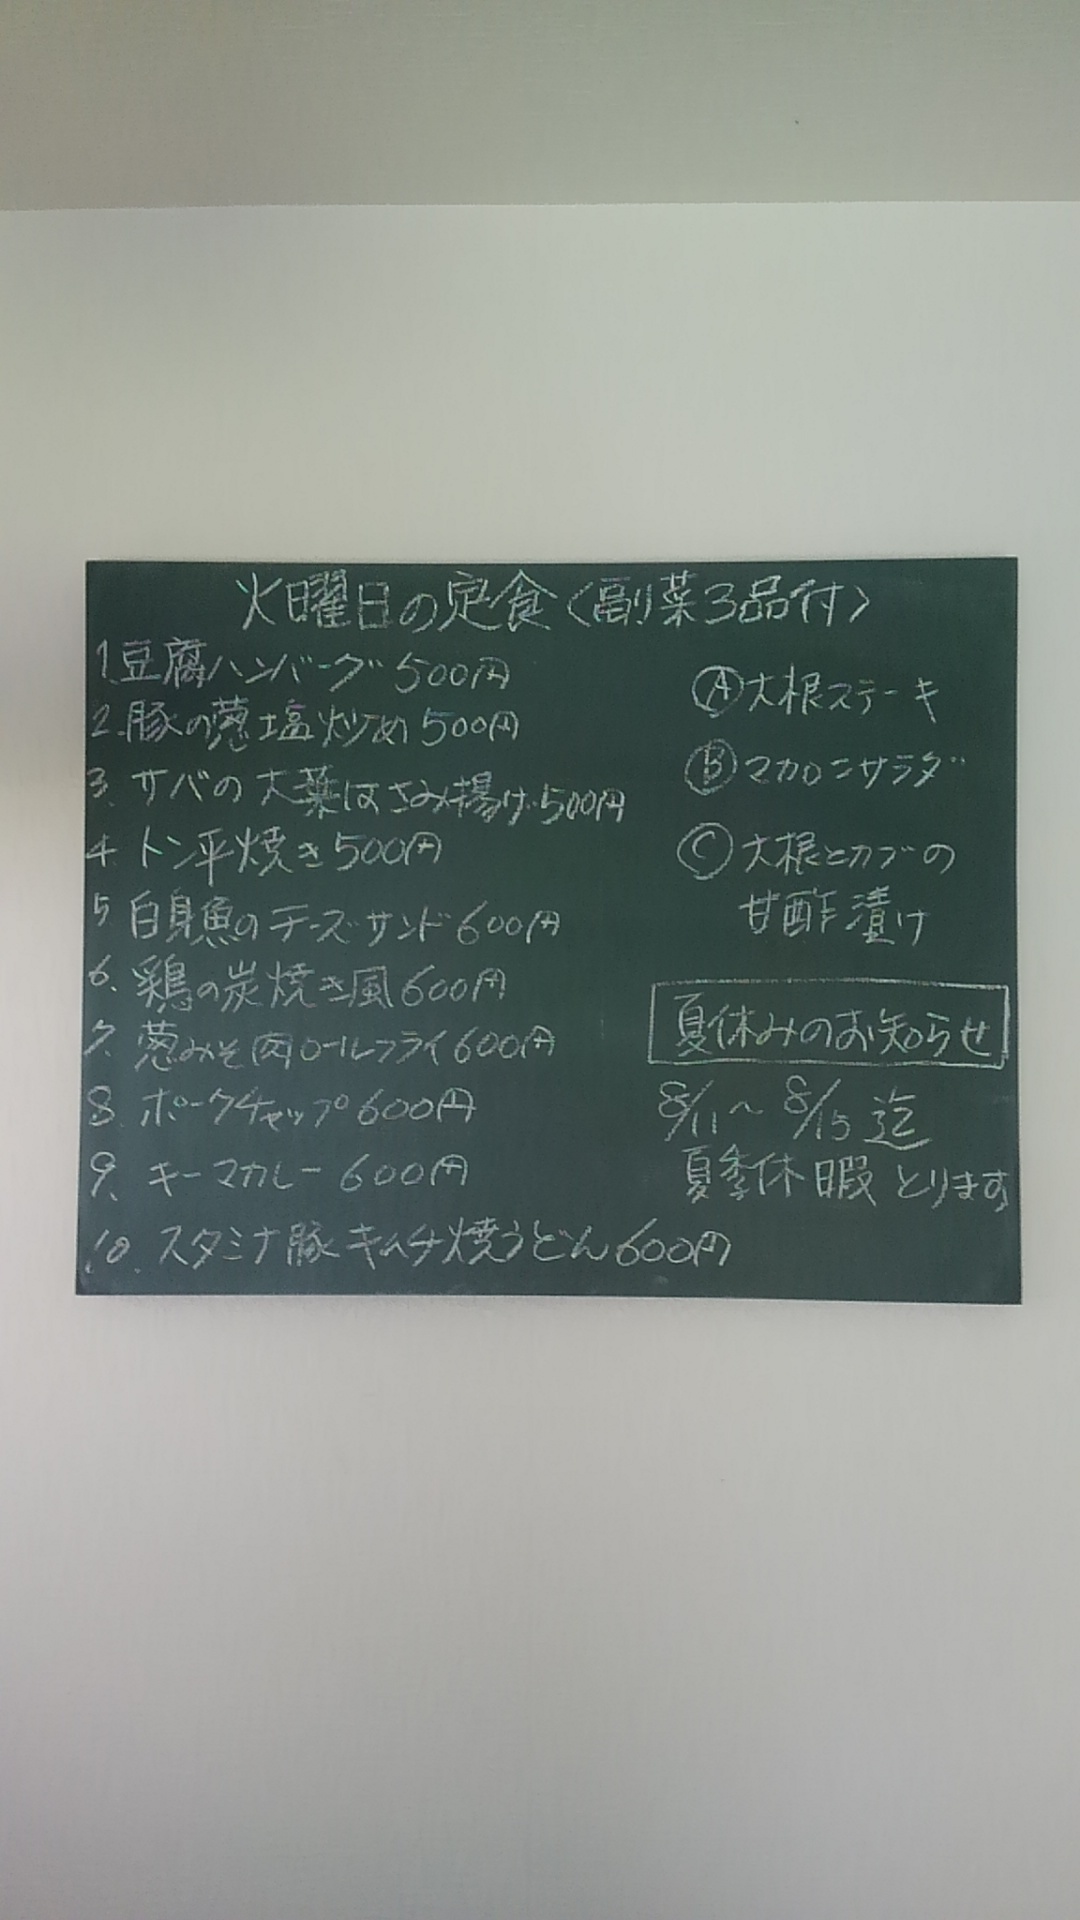 火曜日の定食〈副菜3品付〉
1.豆腐ハンバーグ 500円
2.豚の葱塩炒め 500円
3.サバの大葉はさみ揚げ 500円
4.トン平焼き 500円
5.白身魚のチーズサンド 600円
6.鶏の炭焼き風 600円
7.葱みそ肉ロールフライ 600円
8.ポークチャップ 600円
9.キーマカレー 600円
10.スタミナ豚キムチ焼うどん 600円
Ⓐ大根ステーキ
Ⓑマカロニサラダ
Ⓒ大根とカブの
甘酢漬け
夏休みのお知らせ
8/11〜8/15迄
夏季休暇とります